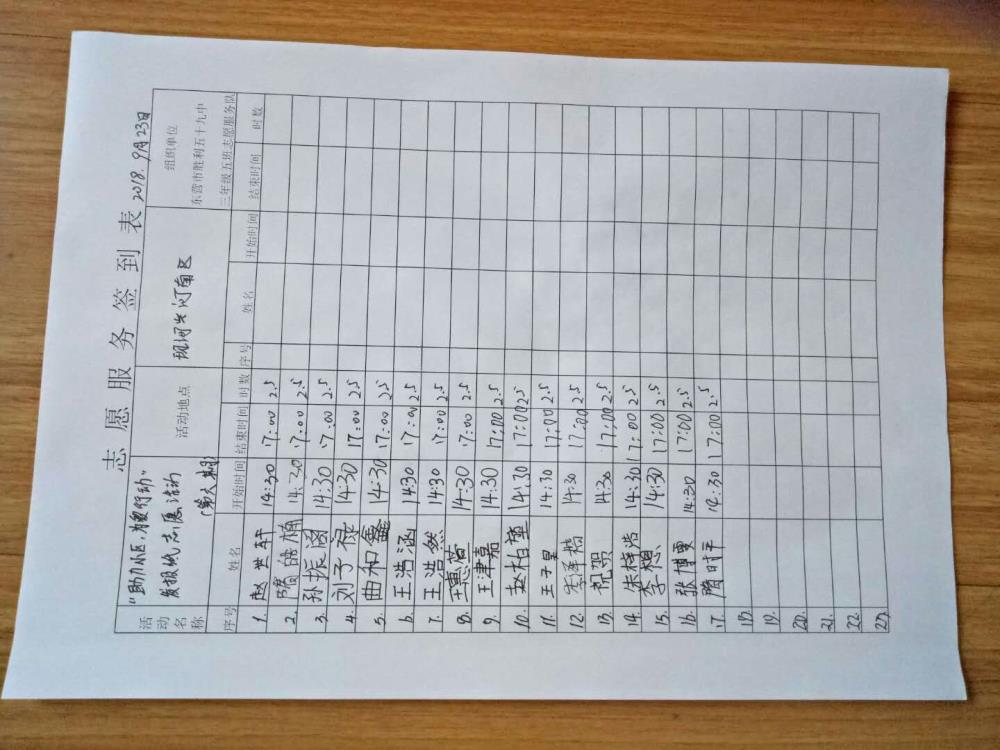 志愿服务签到表 2018.9月23日
活动名称 "助力小区,有我行动" 发报纸志愿活动 活动地点 现河兴河南区 组织单位 东营市胜利五十九中三年级五班志愿服务队
序号 姓名 开始时间 结束时间 时数 序号 姓名 开始时间 结束时间 时数
1. 赵世轩 14:30 17:00 2.5
2. 14:30 17:00 2.5
3. 孙振阁 14:30 17:00 2.5
4. 刘子禄 14:30 17:00 2.5
5. 曲和鑫 14:30 17:00 2.5
6. 王浩涵 14:30 17:00 2.5
7. 王浩然 14:30 17:00 2.5
8. 14:30 17:00 2.5
9. 王津嘉 14:30 17:00 2.5
10. 赵柏堙 14:30 17:00 2.5
11. 王子昊 14:30 17:00 2.5
12. 李泽楷 14:30 17:00 2.5
13. 祝贺 14:30 17:00 2.5
14. 朱梓浩 14:30 17:00 2.5
15. 李想 14:30 17:00 2.5
16. 张博雯 14:30 17:00 2.5
17. 隋时平 14:30 17:00 2.5
18.
19.
20.
21.
22.
23.